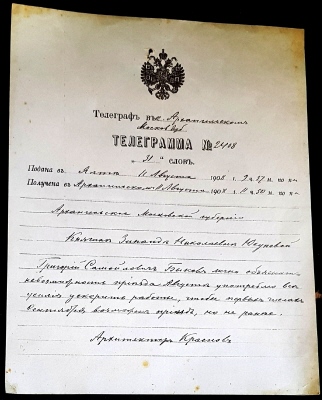 Телеграфъ въ с. Архангельскомъ
Московск. губ
ТЕЛЕГРАММА № 2408
" 31 " словъ.
Подана въ Ялта 11 Августа 1908 г. 9 ч. 27 м. по п
Получена въ Архангельском 11 Августа 1908 г. 11 ч. 50 м. по п
Архангельское Московской губернии
Княгинѣ Зинаидѣ Николаевнѣ Юсуповой
Григорій Самойловичъ Быковъ лично объяснитъ
невозможность пріѣзда Августа употреблю все
усилія ускорить работы, чтобы первыхъ числахъ
Сентября возможенъ пріѣздъ, но не ранѣе.
Архитекторъ Красновъ